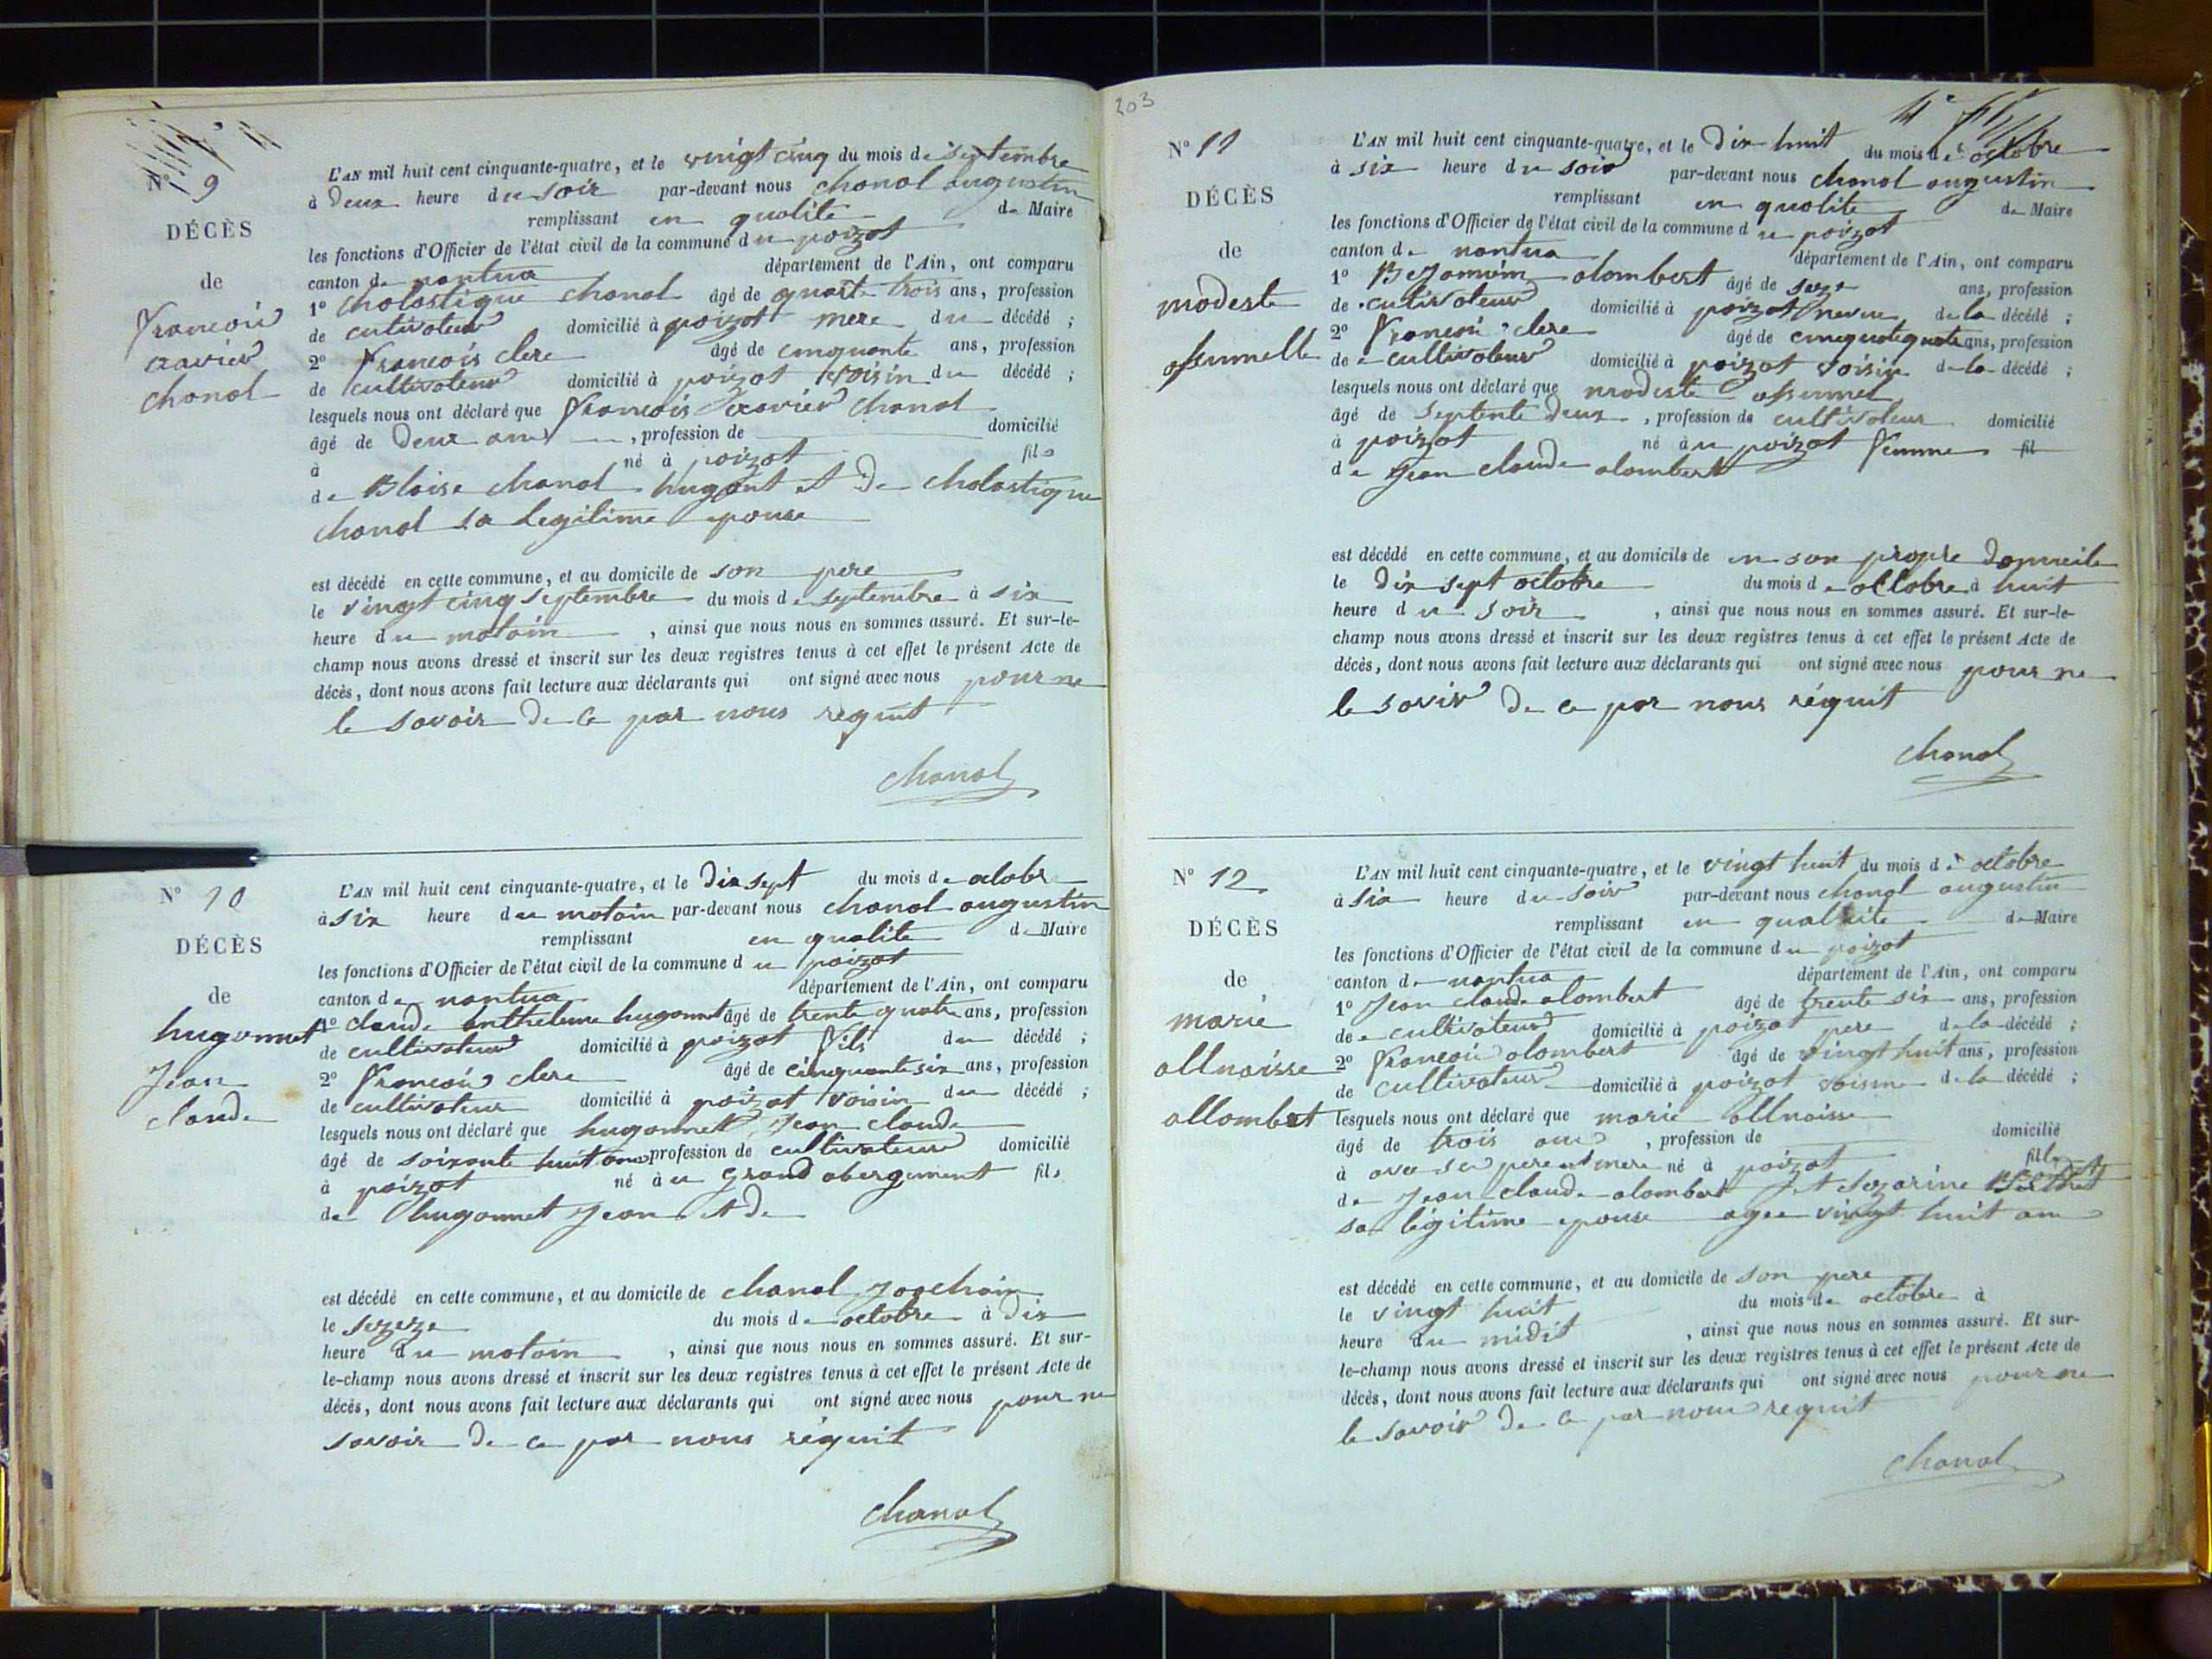 N° 9
DÉCÈS
de
francois
xavier
chanal
L'AN mil huit cent cinquante-quatre, et le vingt cinq du mois de septembre
à deux heure du soir par-devant nous chanal augustin
remplissant en qualite de Maire
les fonctions d'Officier de l'état civil de la commune du poizat
canton de nantua département de l'Ain, ont comparu
1° cholastique chanal âgé de quarte trois ans, profession
de cutivateur domicilié à poizat mere du décédé ;
2° francois clerc âgé de cinquante ans, profession
de cultivateur domicilié à poizat voisin du décédé ;
lesquels nous ont déclaré que francois xavier chanal
âgé de deux ans , profession de domicilié
à né à poizat fils
de Blaise chanal hugont et de cholastique
chanal sa legitime epouse
est décédé en cette commune, et au domicile de son pere
le vingt cinq septembre du mois de septembre à six
heure du matain , ainsi que nous nous en sommes assuré. Et sur-le-
champ nous avons dressé et inscrit sur les deux registres tenus à cet effet le présent Acte de
décès, dont nous avons fait lecture aux déclarants qui ont signé avec nous pour ne
le savoir de ce par nous requit
chanal
N° 10
DÉCÈS
de
hugonnet
Jean
claude
L'AN mil huit cent cinquante-quatre, et le dix sept du mois de octobre
à six heure du matain par-devant nous chanal augustin
remplissant en qualite de Maire
les fonctions d'Officier de l'état civil de la commune du poizat
canton de nantua département de l'Ain, ont comparu
1° claude anthelme hugonnet âgé de trente quatre ans, profession
de cultivateur domicilié à poizat fils du décédé ;
2° francois clerc âgé de cinquante six ans, profession
de cultivateur domicilié à poizat voisin du décédé ;
lesquels nous ont déclaré que hugonnet Jean claude
âgé de soixante huit ans profession de cultivateur domicilié
à poizat né à u grand abergement fils
de hugonnet Jean et de
est décédé en cette commune, et au domicile de chanal Joachain
le sezeze du mois de octobre à dix
heure du matain , ainsi que nous nous en sommes assuré. Et sur-
le-champ nous avons dressé et inscrit sur les deux registres tenus à cet effet le présent Acte de
décès, dont nous avons fait lecture aux déclarants qui ont signé avec nous pour ne
savoir de ce par nous réquit
chanal
203
N° 11
DÉCÈS
de
modeste
assumelle
L'AN mil huit cent cinquante-quatre, et le dix huit du mois de octobre
à six heure du soir par-devant nous chanal augustin
remplissant en qualite de Maire
les fonctions d'Officier de l'état civil de la commune du poizat
canton de nantua département de l'Ain, ont comparu
1° Bejamim alombert âgé de seze ans, profession
de cutivateur domicilié à poizat neveu de la décédé ;
2° francois clerc âgé de cinquatequate ans, profession
de cultivateur domicilié à poizat voisin de la décédé ;
lesquels nous ont déclaré que modeste assumel
âgé de septente deux , profession de cultivateur domicilié
à poizat né à u poizat femme fil
de Jean claude alombert
est décédé en cette commune, et au domicile de en son propre domicile
le dix sept octobre du mois de octobre à huit
heure du soir , ainsi que nous nous en sommes assuré. Et sur-le-
champ nous avons dressé et inscrit sur les deux registres tenus à cet effet le présent Acte de
décès, dont nous avons fait lecture aux déclarants qui ont signé avec nous pour ne
le savir de ce par nous réquit
chanal
N° 12
DÉCÈS
de
marie
allnaisse
allombert
L'AN mil huit cent cinquante-quatre, et le vingt huit du mois de octobre
à six heure du soir par-devant nous chanal augustin
remplissant en qualite de Maire
les fonctions d'Officier de l'état civil de la commune du poizat
canton de nantua département de l'Ain, ont comparu
1° Jean claude alombert âgé de trente six ans, profession
de cultivateur domicilié à poizat pere de la décédé ;
2° francois alombert âgé de vingt huit ans, profession
de cultivateur domicilié à poizat voisin de la décédé ;
lesquels nous ont déclaré que marie allnaisse
âgé de trois ans , profession de domicilié
à avec ses pere et mere né à poizat fille
de Jean claude alombert et sezarine Berthet
sa légitime epouse agee vingt huit ans
est décédé en cette commune, et au domicile de son pere
le vingt huit du mois de octobre à
heure du midit , ainsi que nous nous en sommes assuré. Et sur-
le-champ nous avons dressé et inscrit sur les deux registres tenus à cet effet le présent Acte de
décès, dont nous avons fait lecture aux déclarants qui ont signé avec nous pour ne
le savoir de ce par nous requit
chanal